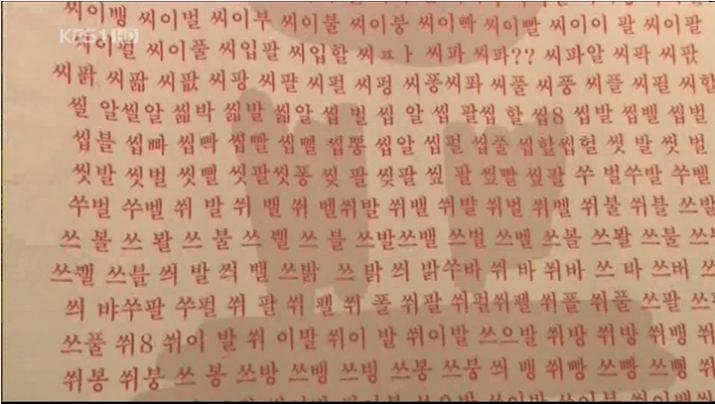 씨이뱅 씨이벌 씨이부 씨이불 씨이붕 씨이빡 씨이빨 씨이이 팔 씨이팔
KBS1 HD
씨이펄 씨이풀 씨입팔 씨입할 씨ㅍㅏ 씨파 씨파?? 씨파알 씨팍 씨팏
씨팕 씨팗 씨팞 씨팡 씨퍌 씨펄 씨펑 씨퐁씨퐈 씨풀 씨풍 씨플 씨필 씨할
씰 알씰알 씲박 씳발 씳알 씹 벌 씹 알 씹 팔씹 할 씹8 씹발 씹벨 씹벌
씹블 씹빠 씹빡 씹빨 씹뻘 씹뽕 씹알 씹 펄 씹풀 씹할씹헐 씻 발 씻 벌
씻발 씻벌 씻뻘 씻팔씻퐁 씾 팔 씾팔 씿 팔 씿빨 씿팔 쑤 벌쑤발 쑤벨
쑤벌 쑤벨 쒸 발 쒸 벨 쒸 벨쒸발 쒸밸 쒸발 쒸벌 쒸벨 쒸불 쒸블 쓰발
쓰 볼 쓰 봘 쓰 불 쓰 벨 쓰 블 쓰발쓰밸 쓰벌 쓰벨 쓰볼 쓰봘 쓰불
쓰벨 쓰블 씌 발 씌 밸 쓰밝 쓰 밝 씌 밝쑤바 쒸 바 쒸바 쓰 바 쓰버 쓰
씌 뱌쑤팔 쑤펄 쒸 팔 쒸 펠 쒸 폴 쒸팔 쒸펄쒸펠 쒸폴 쒸풀 쓰팔 쓰
쓰풀 쒸8 쒸이 발 쒸 이발 쒸이 발 쒸이발 쓰으발 쒸방 쒸뱡 쒸뱅 쒸
쒸봉 쒸붕 쓰 봉 쓰방 쓰뱅 쓰빙 쓰봉 쓰붕 씌 뱅 쒸빵 쓰빵 쓰뼝 쒸